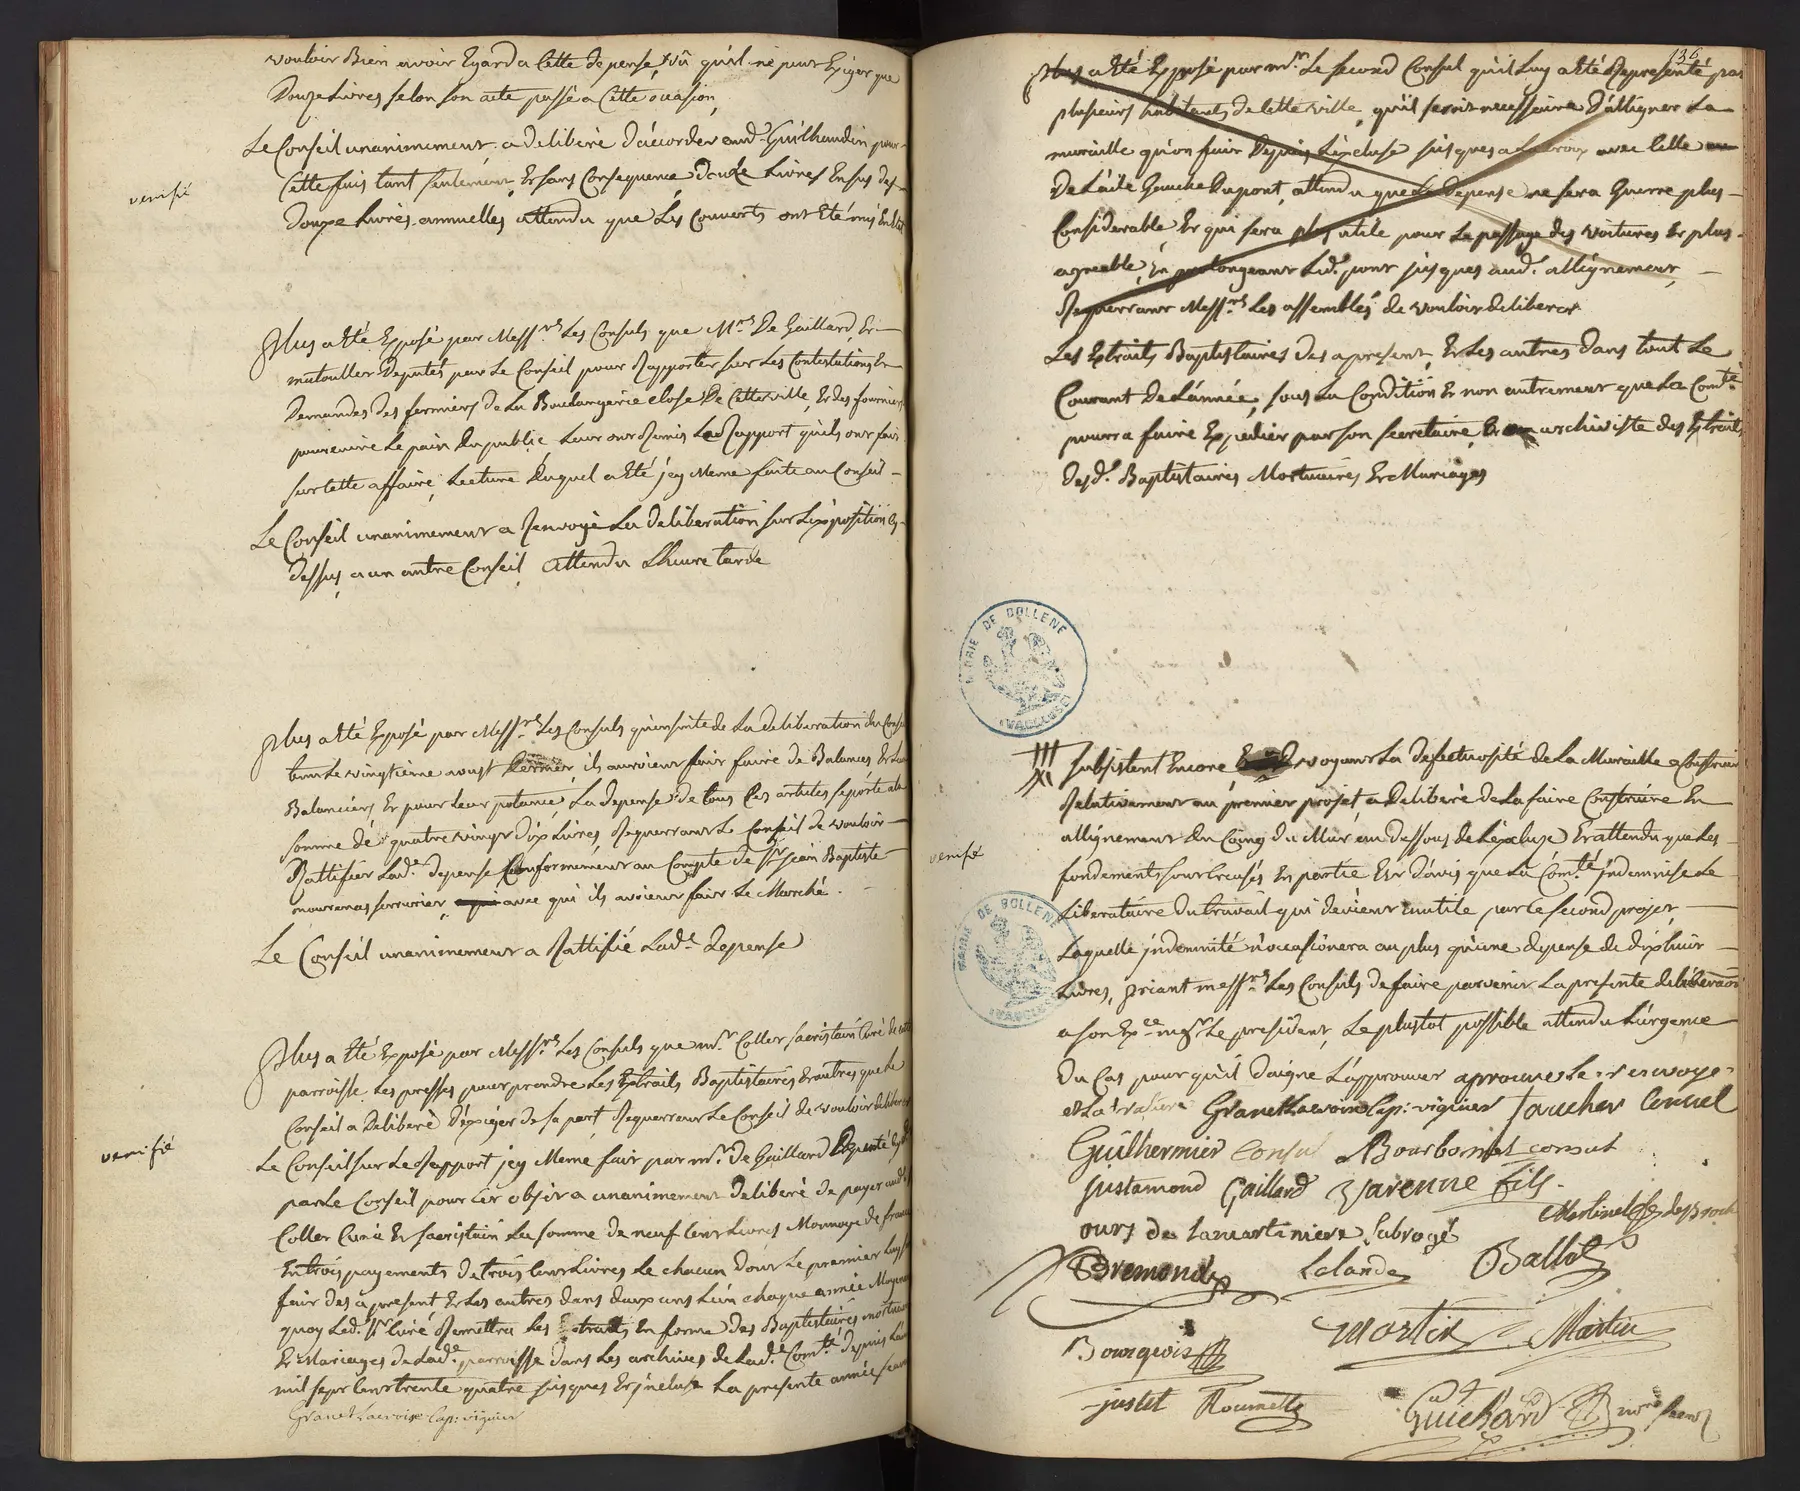 vouloir Bien avoir Egard a Cette depense, vû qu'il ne peut Exiger que
Douze Livres selon son acte passé a Cette ocasion,
Le Conseil unanimement, a deliberé d'accorder aud.t Guilhaudin pour
Cette fois tant seulement, Et sans Consequence douze Livres En sus des
Douze Livres annuelles attendu que Les Couverts ont Eté mis En Etat
verifié
Plus a Eté Exposé par Mess.rs Les Consuls que M.rs De Gaillard, Et
deputés par Le Conseil pour Rapporter sur Les Contestations Et
Demandes des fermiers de La Boulangerie Close De Cette ville, Et des fourniers
pour cuire Le pain du public, Leur ont Remis Le Rapport qu'ils ont fait
sur Cette affaire, Lecture duquel a Eté jcy Meme faite au Conseil
Le Conseil unanimement a Renvoyé La deliberation sur L'Exposition cy
dessus, a un autre Conseil, attendu L'heure tarde
Plus a Eté Exposé par Mess.rs Les Consuls qu'ensuite de La deliberation du Conseil
tenu Le vingtieme aoust dernier, ils auroient fait faire de Balances Et
Balanciers, Et pour leur potance, La depense de tous Ces articles se porte a la
somme de quatre vingt dix Livres, Requerrant Le Conseil de vouloir
Rattifier Lad.e depense Conformement au Compte de S.r jean Baptiste
serrurier, avec qui ils avoient fait Le Marché.
Le Conseil unanimement a Rattifié Lad.e depense
Plus a Eté Exposé par Mess.rs Les Consuls que m.r Collet sacristain Curé de cette
parroisse Les presses pour prendre Les Extraits Baptistaires Et autres que Le
Conseil a Deliberé d'Exiger de sa part, Requerrant Le Conseil de vouloir deliberer
Le Conseil sur Le Rapport jcy Meme fait par m.r de Gaillard Deputé
par Le Conseil pour Cet objet a unanimement deliberé de payer aud.t
verifié
Collet Curé Et sacristain La somme de neuf Cent Livres Monnoye de france
En trois payements de trois Cent Livres Le chacun dont Le premier Luy sera
fait des a present Et Les autres dans deux ans L'un chaque année Moyenant
quoy Led. S.r Curé Remettra Les Extraits En forme des Baptistaires mortuaires
Et Mariages de Lad.e parroisse dans Les archives de Lad.e Com.té depuis L'an
mil sept Cent trente quatre jusques Et jncluse La presente année
Granet Lacroix Cap: viguier
136
Plus a Eté Exposé par m.r Le second Consul qu'il Luy a Eté Representé par
plusieurs habitants de Cette ville, qu'il seroit necessaire D'alligner La
muraille qu'on fait Depuis L'Ecluse jusques a La croix avec Celle
De L'aile Gauche Du pont, attendu que La Depense ne sera Guerre plus
Considerable, Et qui sera plus utile pour Le passage des voitures Et plus
agreable, En prolongeant Led. pont jusques aud. allignement,
Requerrant Mess.rs Les assemblés de vouloir deliberer
Les Extraits Baptistaires des a present, Et Les autres dans tout Le
Courant De L'année, sous La Condition Et non autrement que La Com.té
pourra faire Expedier par son secretaire Et archiviste des Extraits
Desd. Baptistaires Mortuaires Et Mariages
MAIRIE DE BOLLENE
(VAUCLUSE)
subsistent Encore voyant La defectuosité de La Muraille a Construire
Relativement au premier projet, a Deliberé de La faire Construire En
allignement du Coing du Mur au dessous de L'Ecluse Et attendu que Les
verifié
fondements sont Creusés En partie Est d'avis que La Com.té jndemnise Le
Liberataire du travail qui devient inutile par Le second projet,
Laquelle jndemnité n'occasionera au plus qu'une depense de dixhuit
MAIRIE DE BOLLENE
(VAUCLUSE)
Livres, priant mess.rs Les Consuls de faire parvenir La presente deliberation
a son Ex.ce mgr Le president, Le plustot possible attendu L'urgence
Du Cas pour qu'il daigne L'approuver aprouvés Le renvoye
et La rature Granet Lacroix Cap: viguier Faucher Consul
Guilhermier Consul ABourbonnet consul
justamond Gaillard Varenne fils.
Martinel
ours de Lamartiniere Sabrogé
Bremond Lalande Ballot
Bourgeois Martin Martin
justet Roumette
Guichard